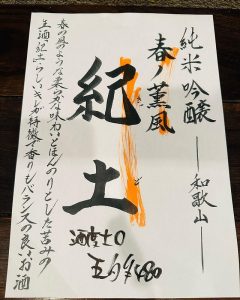 純米吟醸
―和歌山―
春ノ薫風
紀土
春の風のような柔らかな味わいとほんのりとした苦みの
生酒、紀土らしいキレが特徴で香りもバランスの良いお酒
五勺 ¥480